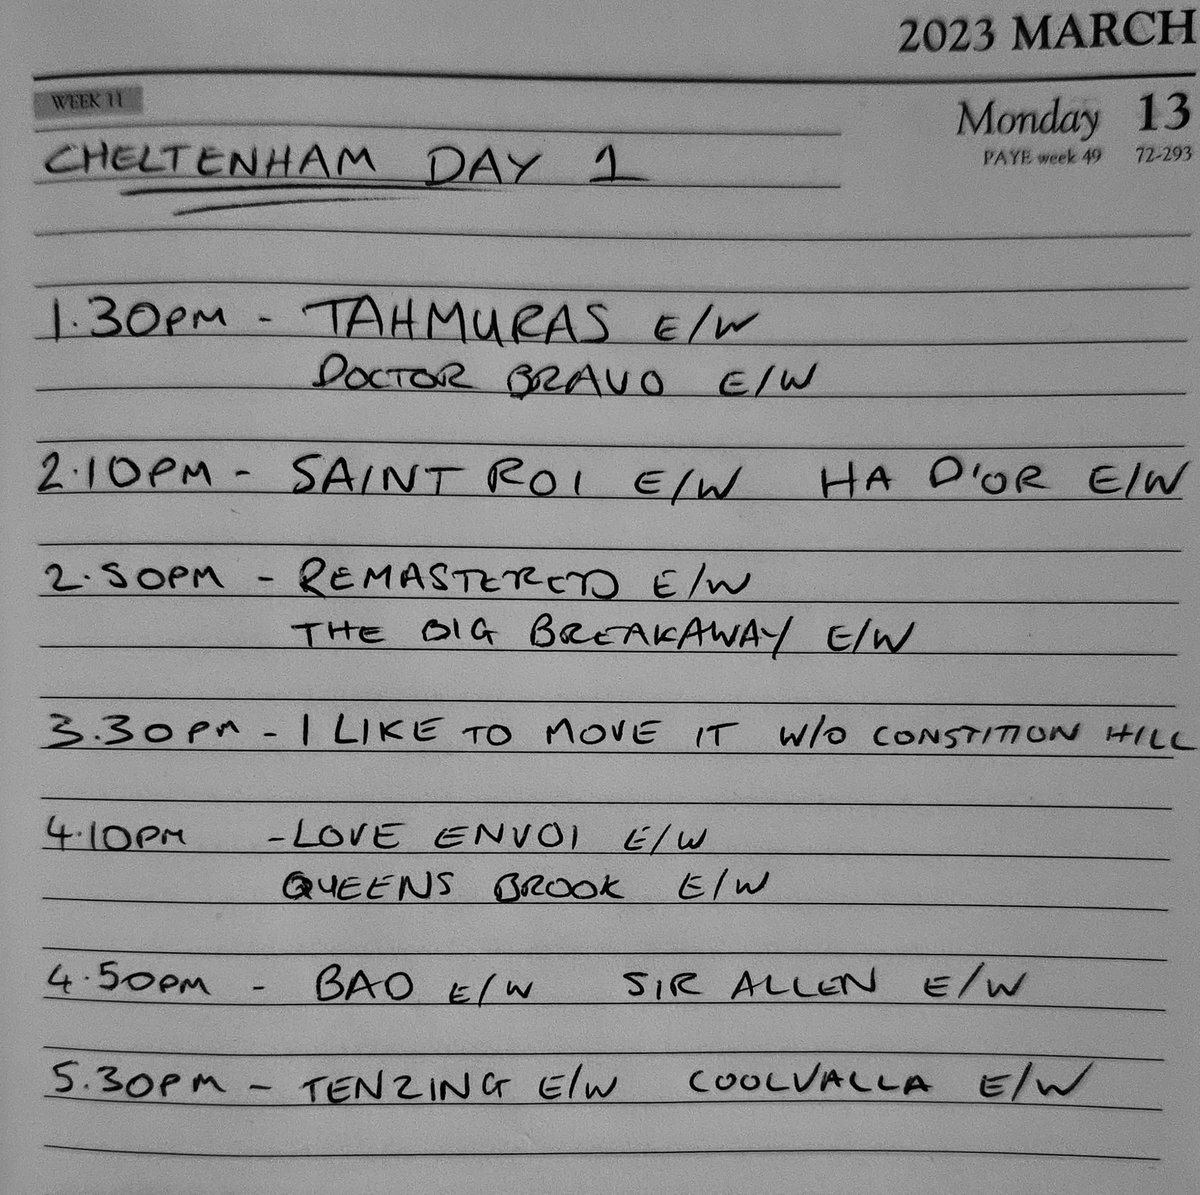 2023 MARCH
WEEK 11
Monday 13
PAYE week 49 72-293
CHELTENHAM DAY 1
1.30PM - TAHMURAS E/W
DOCTOR BRAVO E/W
2.10PM - SAINT ROI E/W HA D'OR E/W
2.50PM - REMASTERED E/W
THE BIG BREAKAWAY E/W
3.30PM - I LIKE TO MOVE IT W/O CONSTITION HILL
4.10PM - LOVE ENVOI E/W
QUEENS BROOK E/W
4.50PM - BAO E/W SIR ALLEN E/W
5.30PM - TENZING E/W COOLVALLA E/W